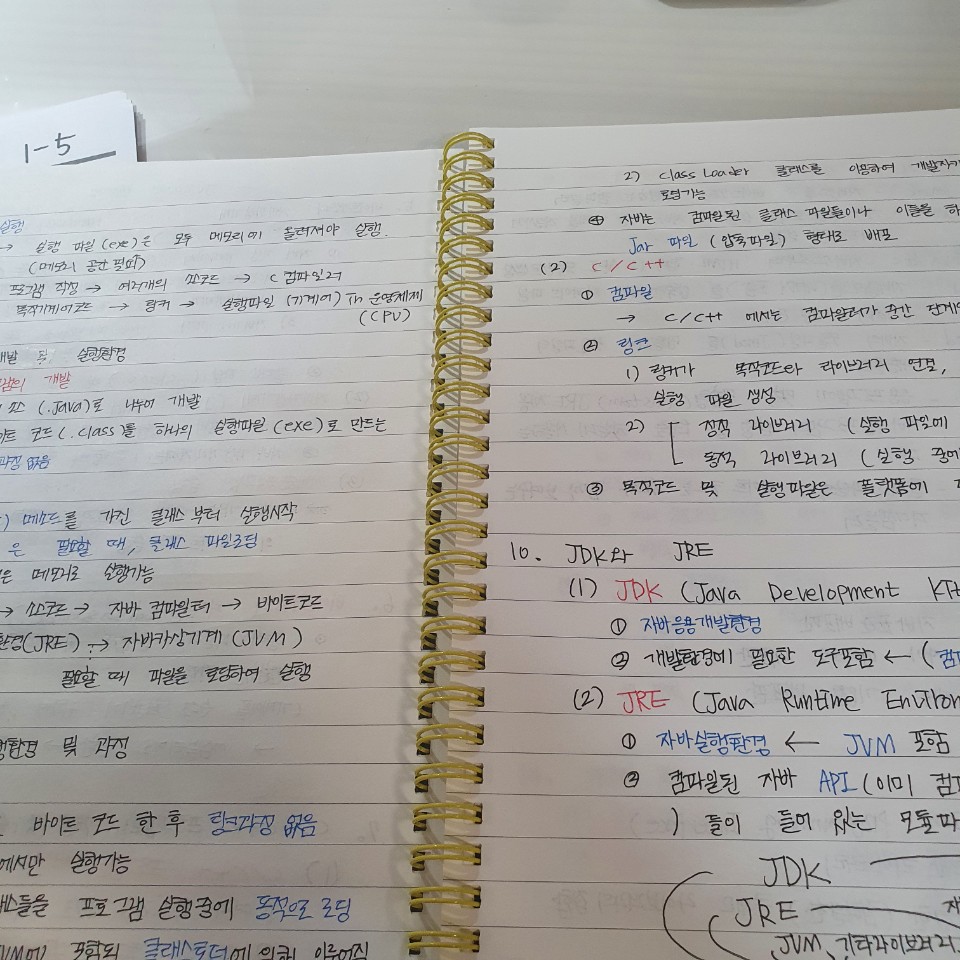 1-5
실행
→ 실행 파일(exe)은 모두 메모리에 올려져야 실행.
(메모리 공간 필요)
프로그램 작성 → 여러개의 소스코드 → C 컴파일러
목적기계어코드 → 링커 → 실행파일 (기계어) In 운영체제
(CPU)
개발 및 실행환경
개발
소스 (.java)로 나누어 개발
코드(.class)를 하나의 실행파일(exe)로 만드는
과정 없음
) 메소드를 가진 클래스부터 실행시작
은 필요할 때, 클래스 파일로딩
은 메모리로 실행가능
→ 소스코드 → 자바 컴파일러 → 바이트코드
환경(JRE) → 자바가상기계(JVM)
필요할 때 파일을 로딩하여 실행
환경 및 과정
바이트 코드 한 후 링크과정 없음
에서만 실행가능
프로그램 실행중에 동적으로 로딩
포함된 클래스로더에 의해 이루어짐
2) Class Loader 클래스를 이용하여 개발자가
로딩가능
④ 자바는 컴파일된 클래스 파일들이나 이들을 하
Jar 파일 (압축파일) 형태로 배포
(2) C/C++
① 컴파일
→ C/C++ 에서는 컴파일러가 중간 단계
② 링크
1) 링커가 목적코드와 라이브러리 연결,
실행 파일 생성
2) [ 정적 라이브러리 (실행 파일에
동적 라이브러리 (실행 중에
③ 목적코드 및 실행파일은 플랫폼에
10. JDK와 JRE
(1) JDK (Java Development Kit
① 자바응용개발환경
② 개발환경에 필요한 도구포함 ← (컴파
(2) JRE (Java Runtime Environ
① 자바실행환경 ← JVM 포함
② 컴파일된 자바 API (이미 컴파
) 들이 들어 있는 모듈파
JDK
JRE
JVM, 기타라이브러리